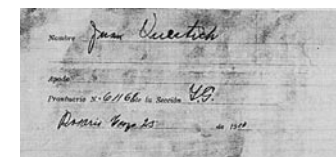 Nombre Juan Vucetich
Apodo
Prontuario N.º 61168 de la Sección I.G.
Rosario Mayo 25 de 19